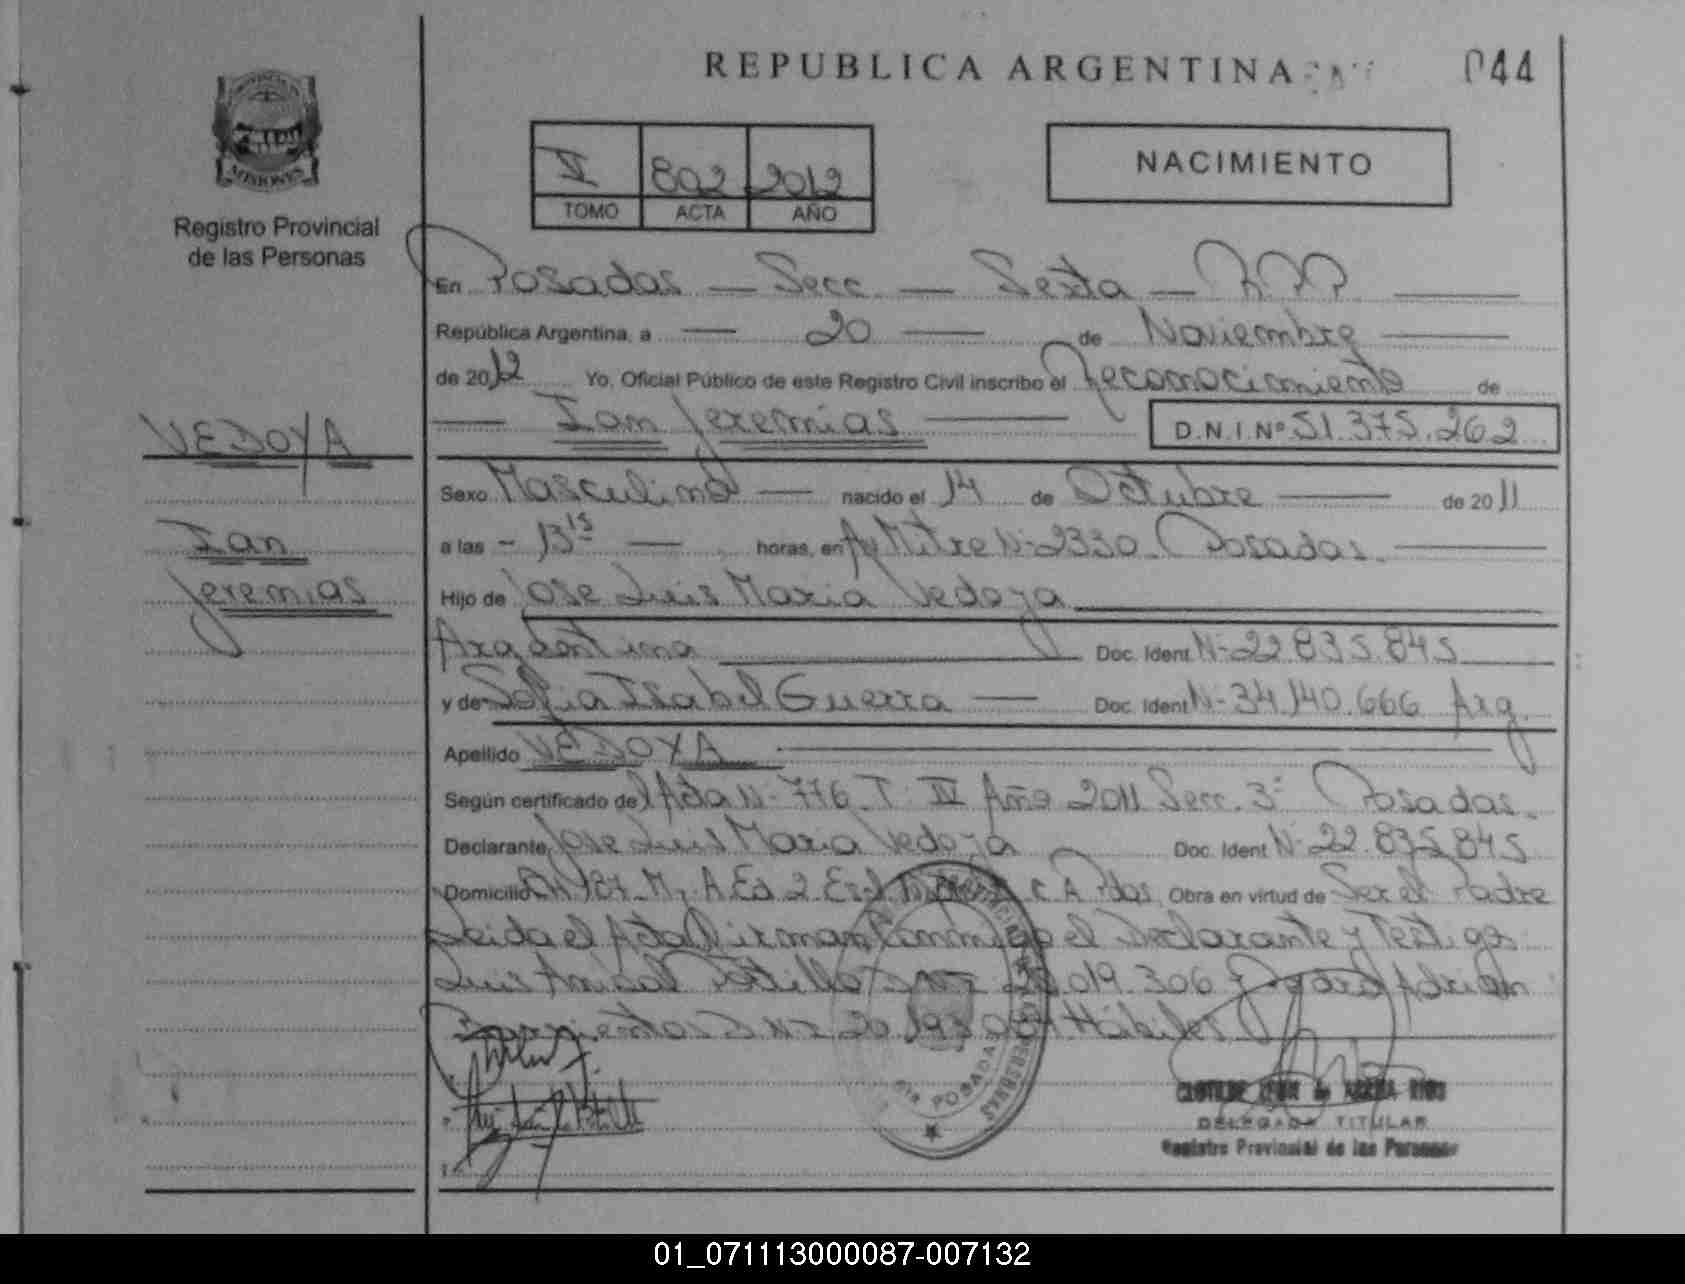 REPUBLICA ARGENTINA
044
PROVINCIA
MISIONES
Registro Provincial
de las Personas
V 802 2012
TOMO ACTA AÑO
NACIMIENTO
En Posadas — Secc. — Sexta — RPP
República Argentina, a — 20 — de Noviembre
de 2012 Yo, Oficial Público de este Registro Civil inscribo el Reconocimiento de
— Ian Jeremias — D.N.I.Nº 51.375.262
VEDOYA
Ian
Jeremias
Sexo Masculino — nacido el 14 de Octubre — de 2011
a las - 13 15 — horas, en Av Mitre Nº 2330 Posadas.
Hijo de Jose Luis Maria Vedoya
Argentino Doc. Ident Nº 22.835.845
y de Sofia Isabel Guerra — Doc. Ident Nº 34.140.666 Arg.
Apellido VEDOYA
Según certificado del Acta Nº 776 T. IV Año 2011 Secc. 3ª Posadas.
Declarante Jose Luis Maria Vedoya Doc. Ident Nº 22.835.845
Domicilio CH 187 Mz A Ed. 2 C. A Pdas. Obra en virtud de Ser el Padre
Leida el Acta Firman Conmigo el Declarante y Testigos
Luis Anibal DNI 019.306 Adrian
Barrientos DNI 20. Hábiles
6ta POSADAS
DELEGADA TITULAR
Registro Provincial de las Personas
01_071113000087-007132